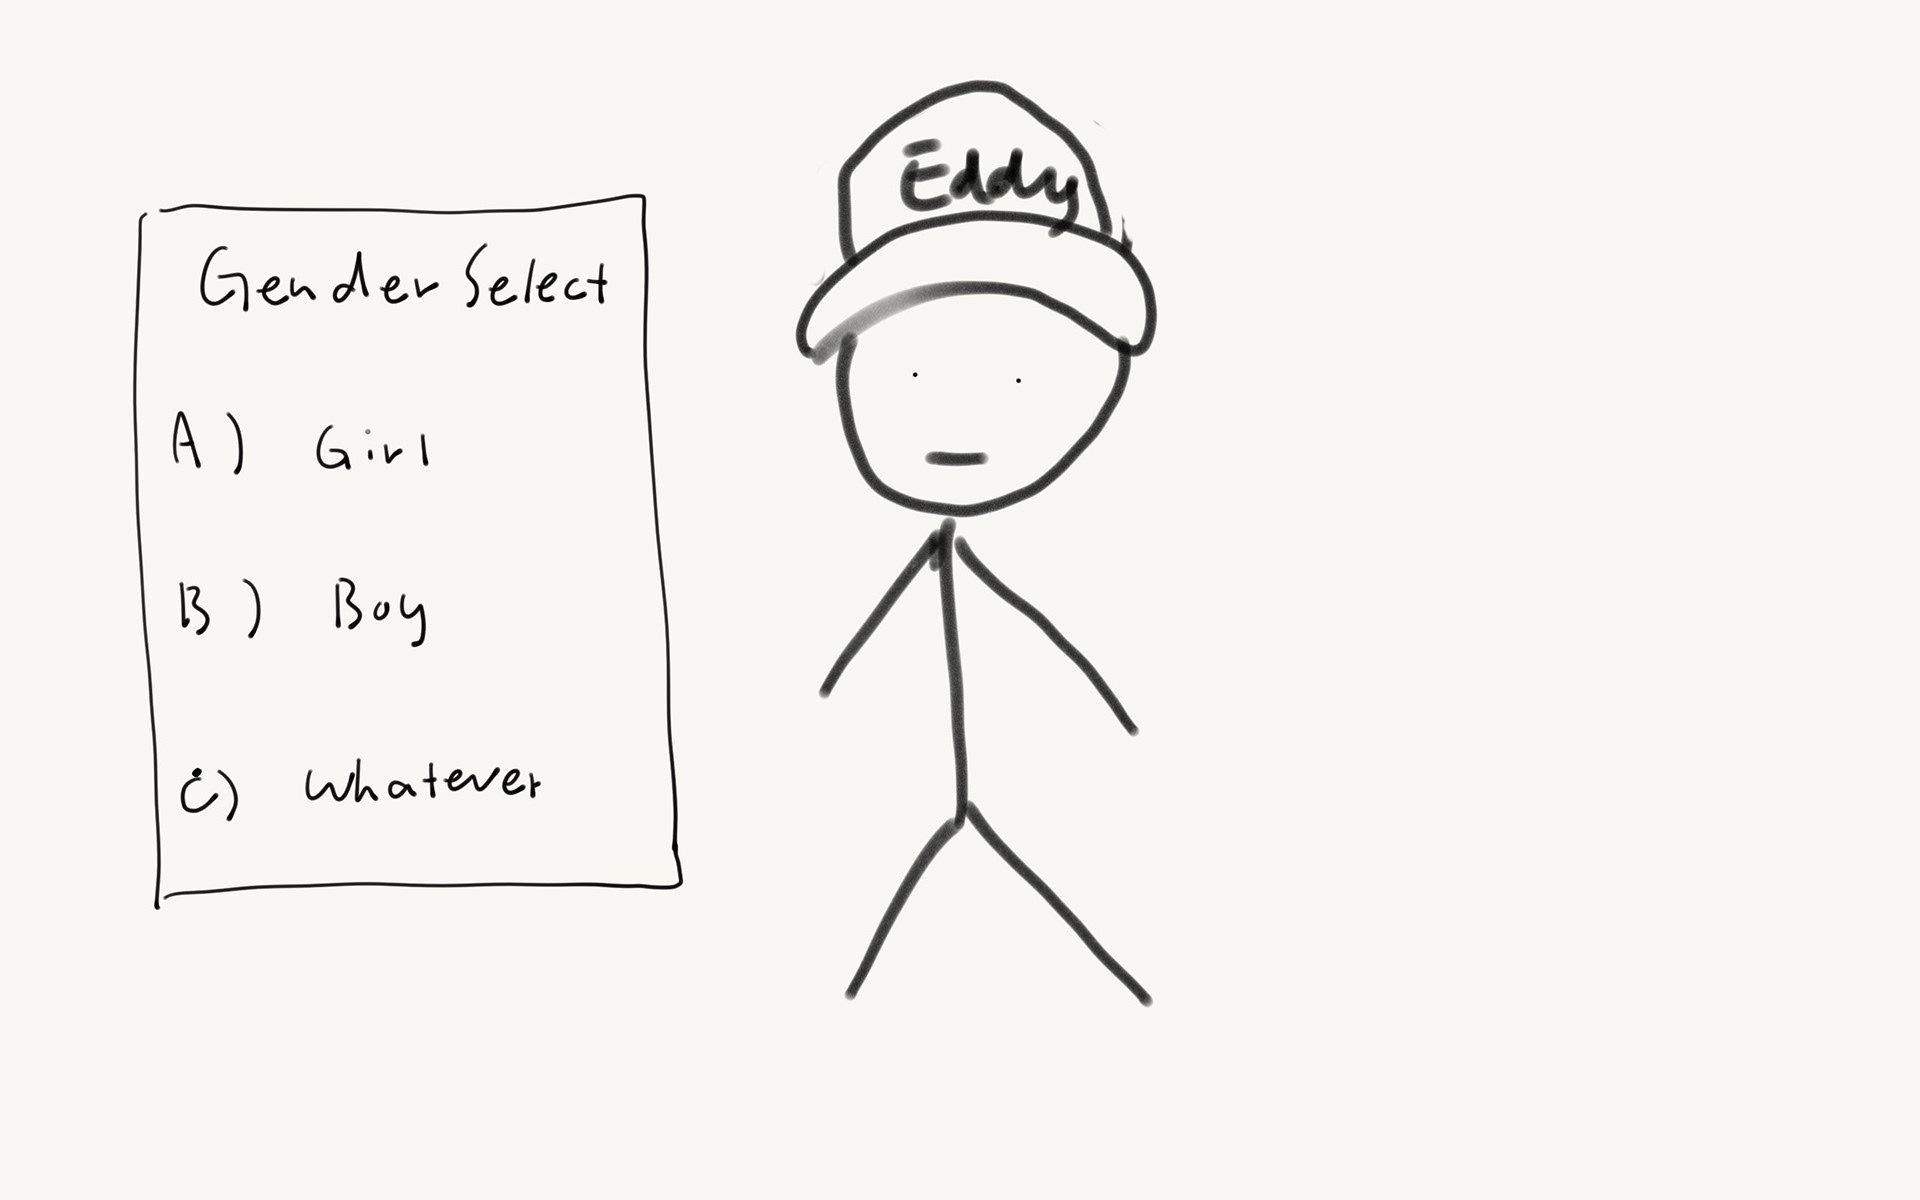 Gender Select
A) Girl
B) Boy
C) Whatever
Eddy